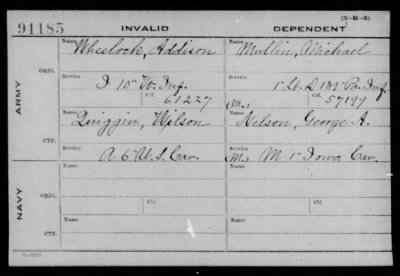 (3-H-5)
91185
INVALID
DEPENDENT
ARMY
ORIG.
Name Wheelock, Addison
Name Mullin, Michael
Service I 10" Vt. Inf.
Service 1" Lt. D 189" Pa. Inf.
Ctf. 61227
(M.) Ctf. 57199
CTF.
Name Quiggin, Wilson
Name Nelson, George A.
Service A 6 U.S. Cav.
Service (M.) M 1" Iowa Cav.
NAVY
ORIG.
Name
Name
CTF.
Name
Name